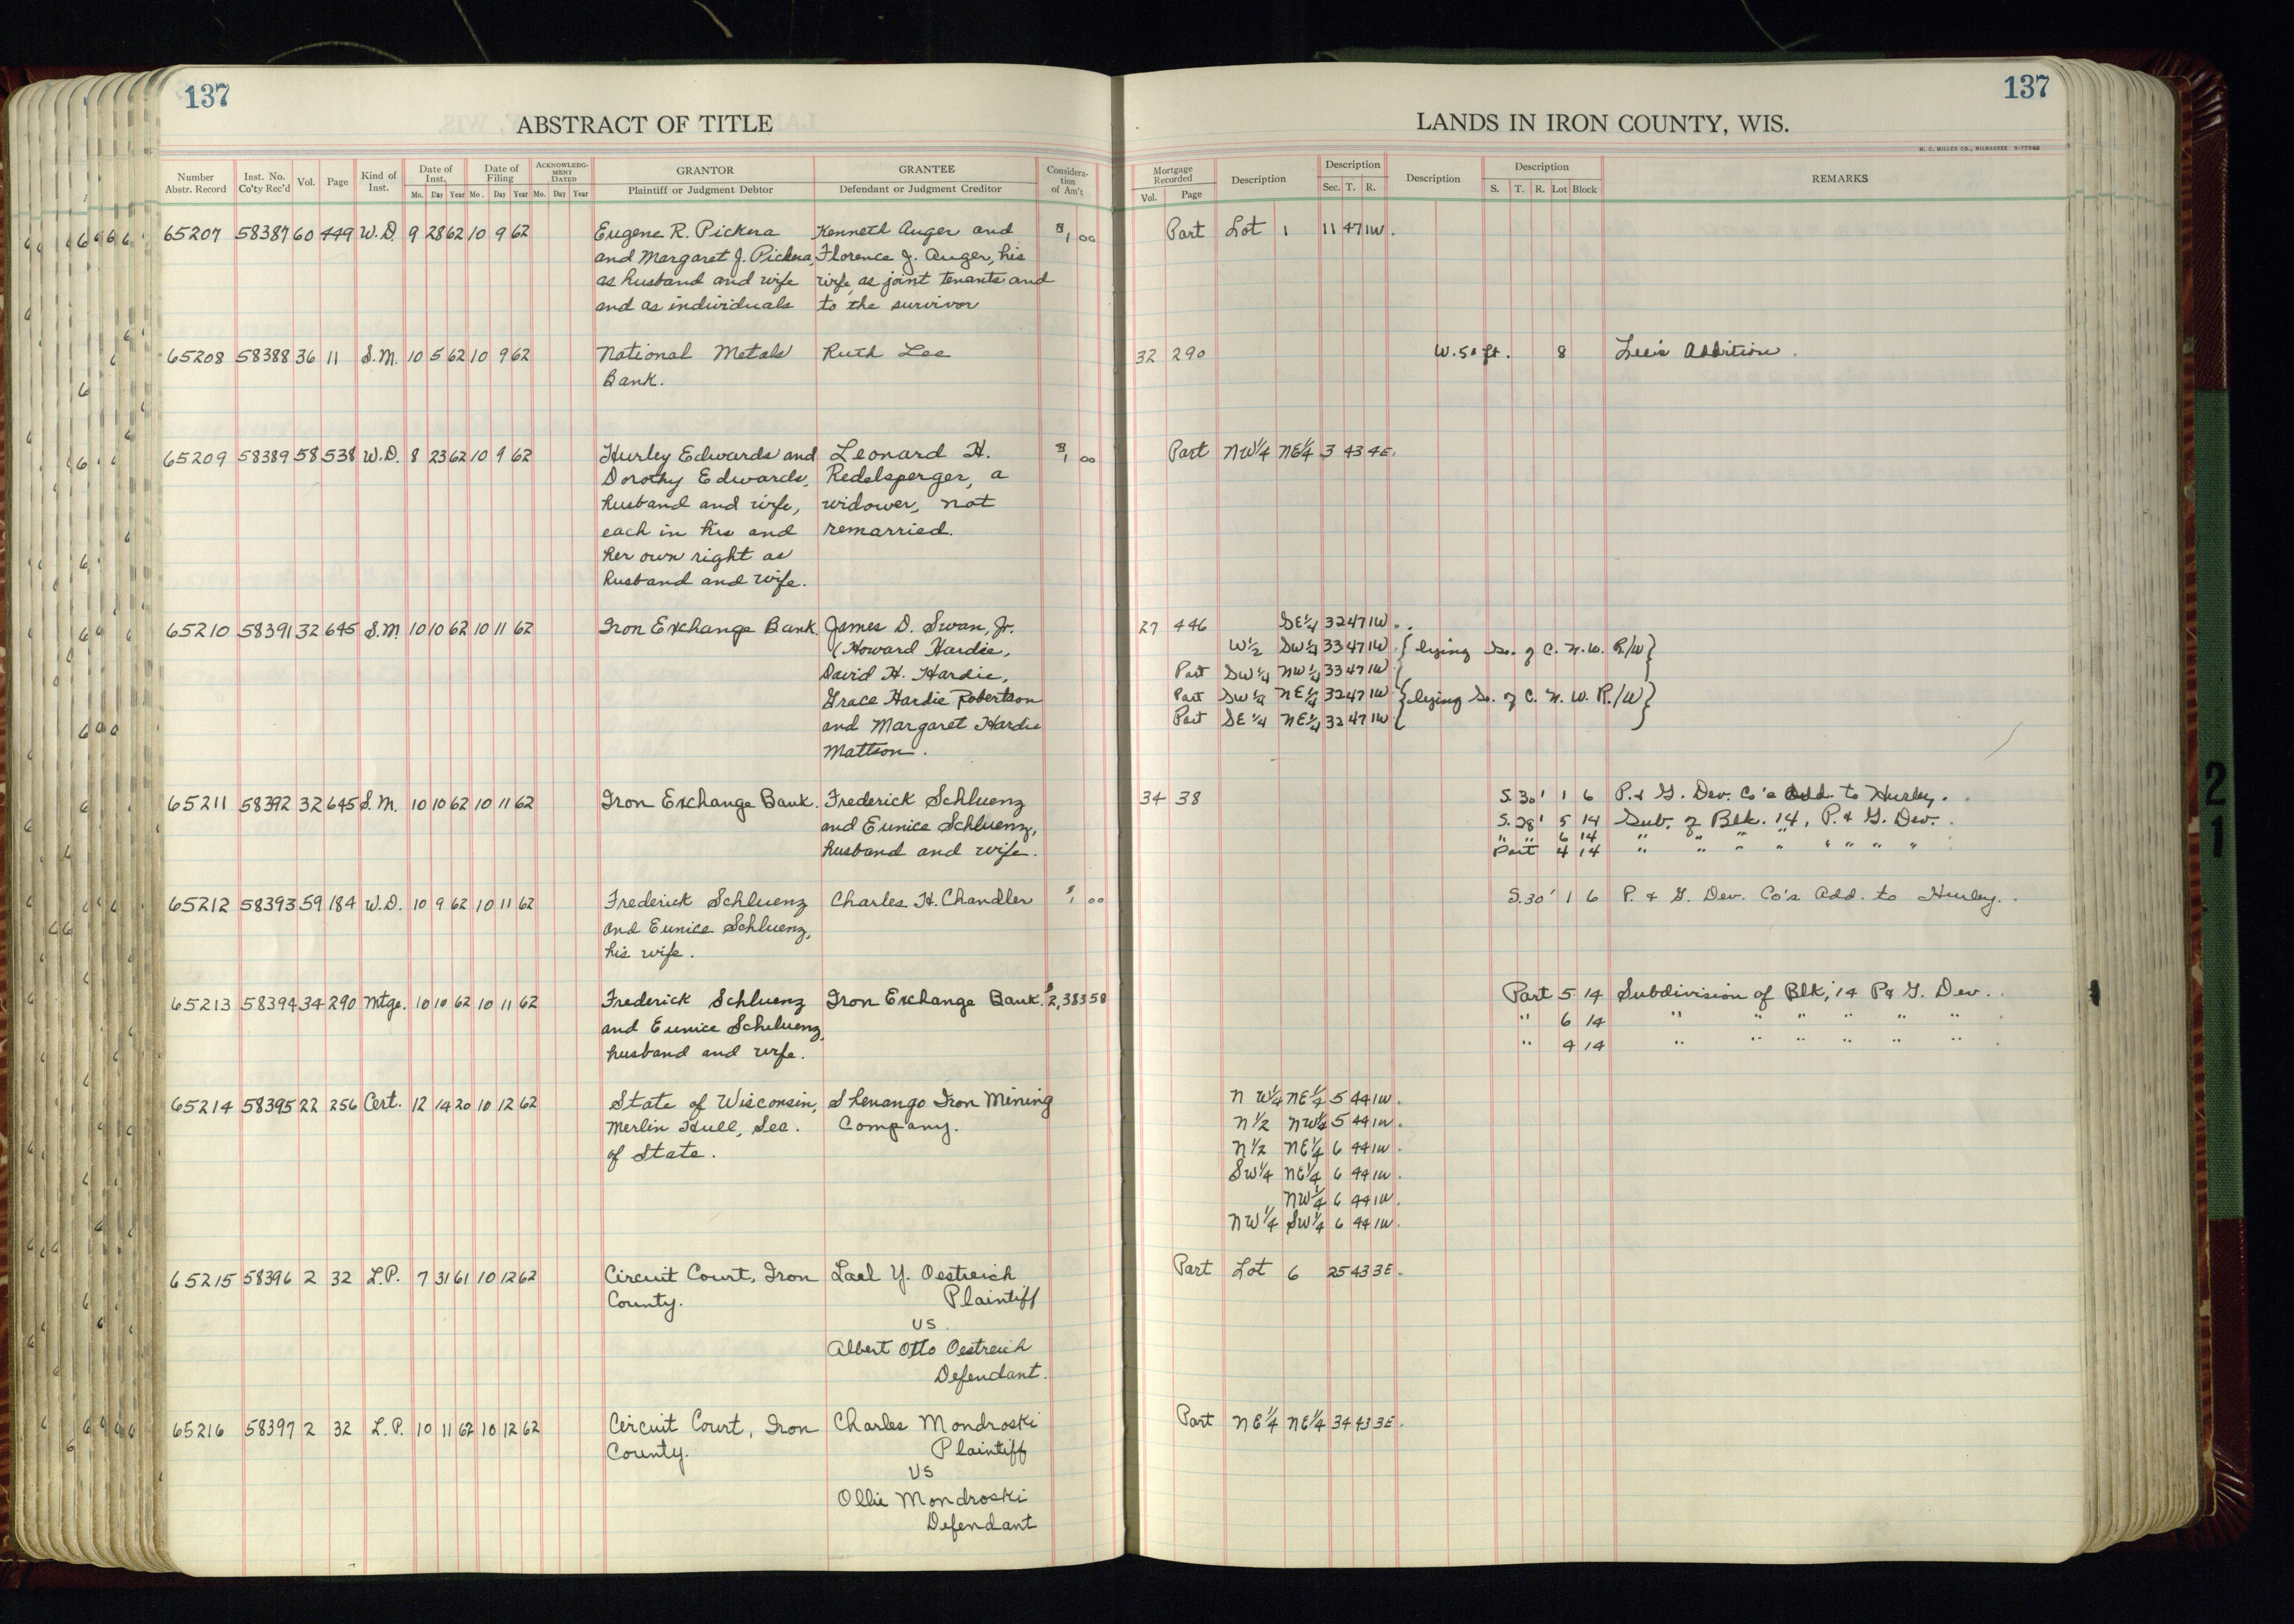 137
137
ABSTRACT OF TITLE
LANDS IN IRON COUNTY, WIS.
H. C. MILLER CO., MILWAUKEE
Number Abstr. Record
Inst. No. Co'ty Rec'd
Vol.
Page
Kind of Inst.
Date of Inst.
Mo. Day Year
Date of Filing
Mo. Day Year
ACKNOWLEDGMENT DATED
Mo. Day Year
GRANTOR
Plaintiff or Judgment Debtor
GRANTEE
Defendant or Judgment Creditor
Consideration of Am't
Mortgage Recorded
Vol. Page
Description
Description
Sec. T. R.
Description
Description
S. T. R. Lot Block
REMARKS
65207 58387 60 449 W.D. 9 28 62 10 9 62 Eugene R. Pickera Kenneth Auger and $1 00 Part Lot 1 11 47 1W.
and Margaret J. Pickera, Florence J. Auger, his
as husband and wife wife, as joint tenants and
and as individuals to the survivor
65208 58388 36 11 S.M. 10 5 62 10 9 62 National Metals Ruth Lee 32 290 W. 50 ft. 8 Lee's Addition.
Bank.
65209 58389 58 538 W.D. 8 23 62 10 9 62 Hurley Edwards and Leonard H. $1 00 Part NW¼ NE¼ 3 43 4E.
Dorothy Edwards, Redelsperger, a
husband and wife, widower, not
each in his and remarried.
her own right as
husband and wife.
65210 58391 32 645 S.M. 10 10 62 10 11 62 Iron Exchange Bank. James D. Swan, Jr. 27 446 SE¼ 32 47 1W.
(Howard Hardie, W½ SW¼ 33 47 1W { lying So. of C. N. W. R/W }
David H. Hardie, Part SW¼ NW¼ 33 47 1W
Grace Hardie Robertson Part SW¼ NE¼ 32 47 1W { lying So. of C. N. W. R/W }
and Margaret Hardie Part SE¼ NE¼ 32 47 1W
Mattson.
65211 58392 32 645 S.M. 10 10 62 10 11 62 Iron Exchange Bank. Frederick Schluenz 34 38 S. 30' 1 6 P. & G. Dev. Co's Add. to Hurley.
and Eunice Schluenz, S. 28' 5 14 Sub. of Blk. 14, P. & G. Dev.
husband and wife. " " 6 14 " " " " " " " "
Part 4 14 " " " " " " " "
65212 58393 59 184 W.D. 10 9 62 10 11 62 Frederick Schluenz Charles H. Chandler $1 00 S. 30' 1 6 P. & G. Dev. Co's Add. to Hurley.
and Eunice Schluenz,
his wife.
65213 58394 34 290 Mtge. 10 10 62 10 11 62 Frederick Schluenz Iron Exchange Bank. $2,383 58 Part 5 14 Subdivision of Blk, 14 P & G. Dev.
and Eunice Schluenz, " 6 14 " " " " " "
husband and wife. " 4 14 " " " " " "
65214 58395 22 256 Cert. 12 14 20 10 12 62 State of Wisconsin, Shenango Iron Mining N W¼ NE¼ 5 44 1W.
Merlin Hull, Sec. Company. N½ NW¼ 5 44 1W.
of State. N½ NE¼ 6 44 1W.
SW¼ NE¼ 6 44 1W.
NW¼ 6 44 1W.
NW¼ SW¼ 6 44 1W.
65215 58396 2 32 L.P. 7 31 61 10 12 62 Circuit Court, Iron Lael Y. Oestreich Part Lot 6 25 43 3E.
County. Plaintiff
US.
Albert Otto Oestreich
Defendant.
65216 58397 2 32 L.P. 10 11 62 10 12 62 Circuit Court, Iron Charles Mondroski Part NE¼ NE¼ 34 43 3E.
County. Plaintiff
US
Ollie Mondroski
Defendant
21